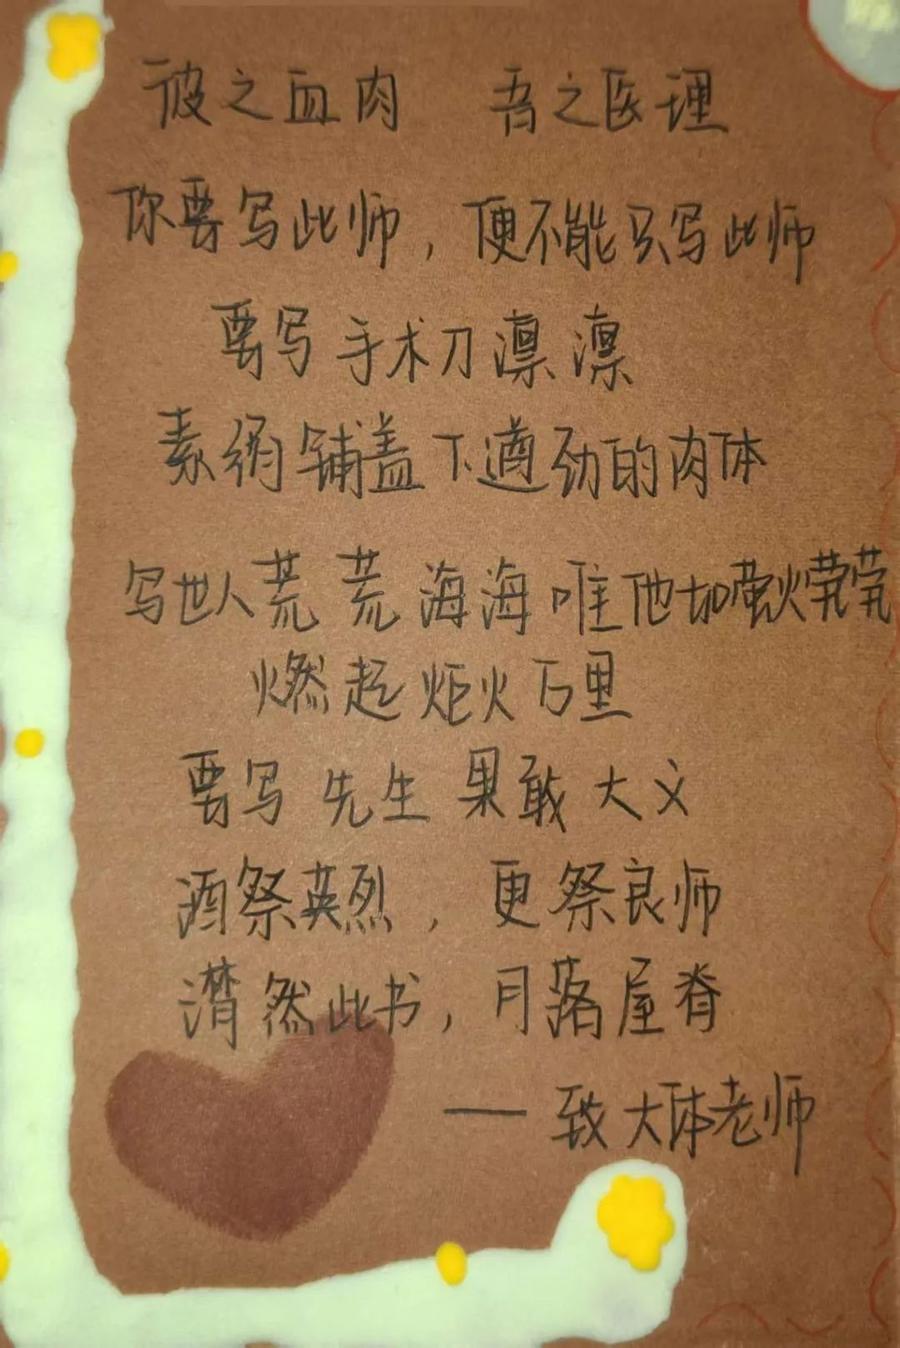 彼之血肉 吾之医理
你要写此师，便不能只写此师
要写手术刀凛凛
素绢铺盖下遒劲的肉体
写世人荒荒海海唯他如萤火荧荧
燃起炬火万里
要写先生果敢大义
酒祭英烈，更祭良师
潸然此书，月落屋脊
——致大体老师